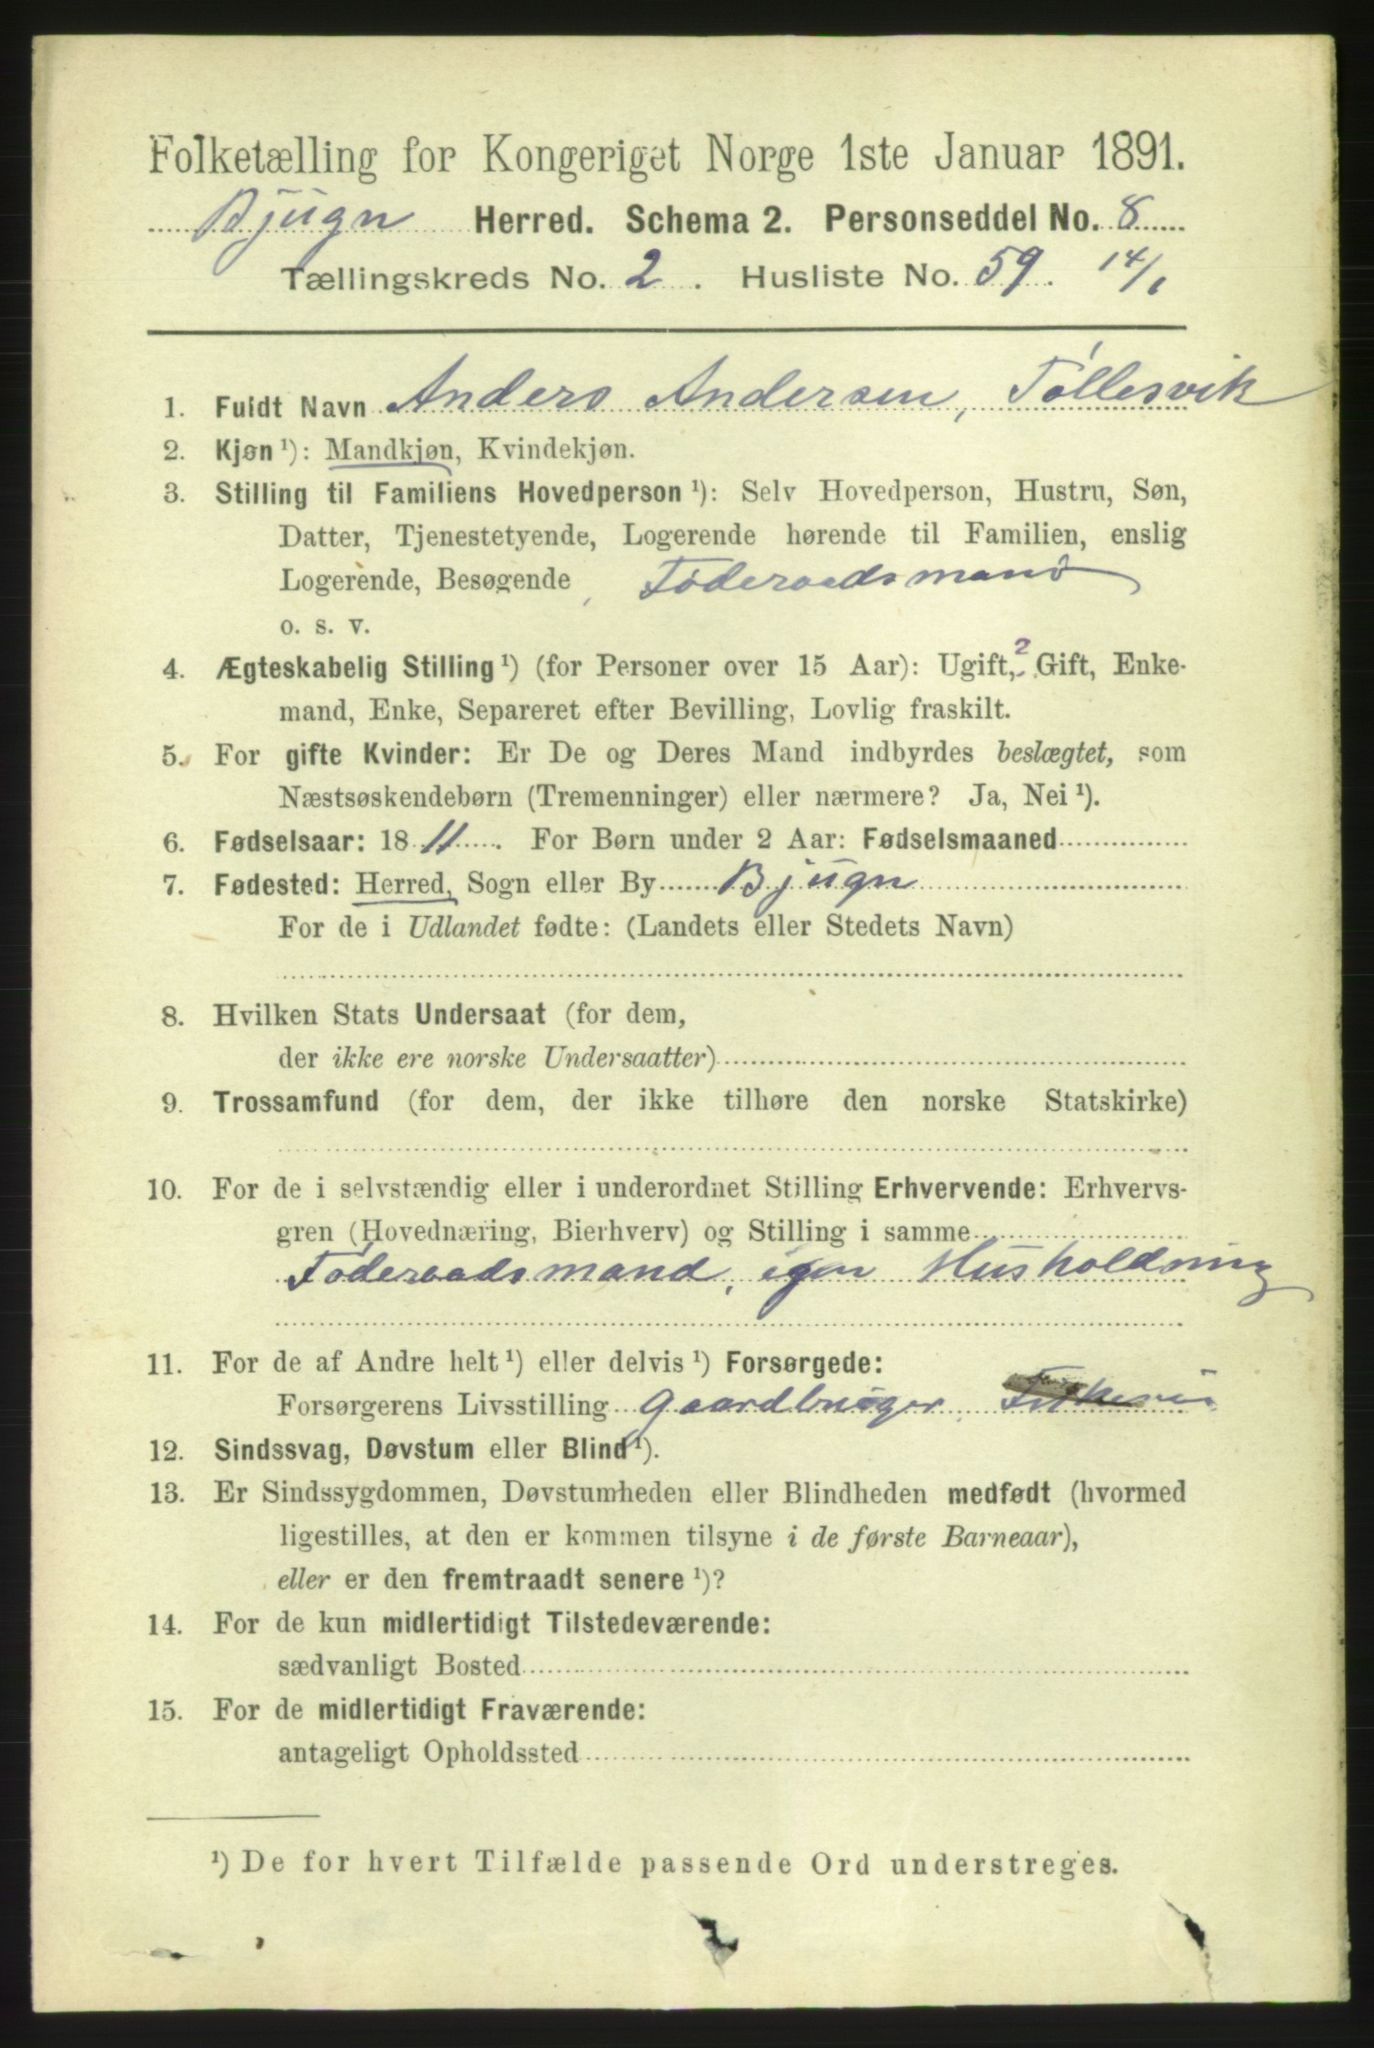 Folketælling for Kongeriget Norge 1ste Januar 1891.
Bjugn Herred. Schema 2. Personseddel No. 8
Tællingskreds No. 2. Husliste No. 59. 14/1
1. Fuldt Navn Anders Andersen, Töllesvik
2. Kjøn ¹): Mandkjøn, Kvindekjøn.
3. Stilling til Familiens Hovedperson ¹): Selv Hovedperson, Hustru, Søn,
Datter, Tjenestetyende, Logerende hørende til Familien, enslig
Logerende, Besøgende, Föderaadsmand
o. s. v.
4. Ægteskabelig Stilling ¹) (for Personer over 15 Aar): Ugift, ? Gift, Enke-
mand, Enke, Separeret efter Bevilling, Lovlig fraskilt.
5. For gifte Kvinder: Er De og Deres Mand indbyrdes beslægtet, som
Næstsøskendebørn (Tremenninger) eller nærmere? Ja, Nei ¹).
6. Fødselsaar: 1811. For Børn under 2 Aar: Fødselsmaaned
7. Fødested: Herred, Sogn eller By Bjugn
For de i Udlandet fødte: (Landets eller Stedets Navn)
8. Hvilken Stats Undersaat (for dem,
der ikke ere norske Undersaatter)
9. Trossamfund (for dem, der ikke tilhøre den norske Statskirke)
10. For de i selvstændig eller i underordnet Stilling Erhvervende: Erhvervs-
gren (Hovednæring, Bierhverv) og Stilling i samme
Föderaadsmand, egen Husholdning
11. For de af Andre helt ¹) eller delvis ¹) Forsørgede:
Forsørgerens Livsstilling gaardbruger,
12. Sindssvag, Døvstum eller Blind ¹).
13. Er Sindssygdommen, Døvstumheden eller Blindheden medfødt (hvormed
ligestilles, at den er kommen tilsyne i de første Barneaar),
eller er den fremtraadt senere ¹)?
14. For de kun midlertidigt Tilstedeværende:
sædvanligt Bosted
15. For de midlertidigt Fraværende:
antageligt Opholdssted
¹) De for hvert Tilfælde passende Ord understreges.